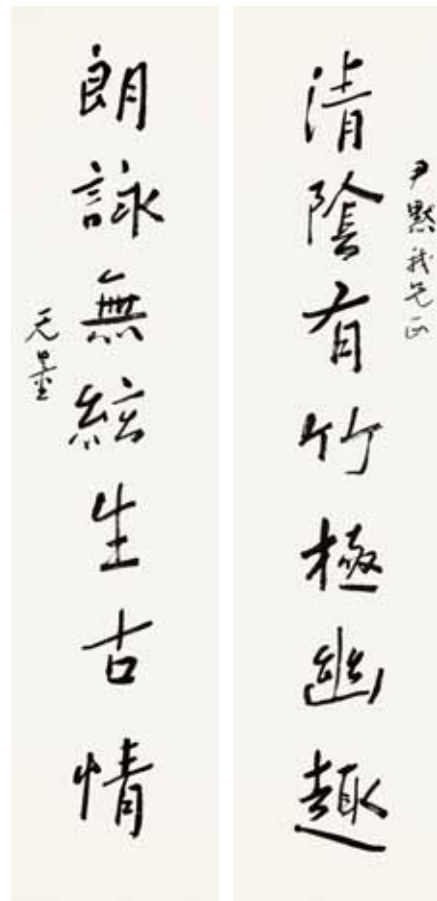 尹默我兄正
清陰有竹極幽趣
朗詠無絃生古情
无量